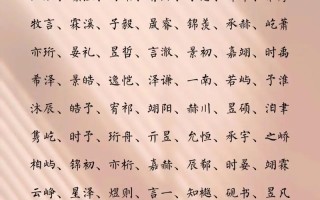 牧言、霖溪、于毅、晟睿、锦羡、承赫、屹萧
亦珩、晏礼、昱哲、言澈、景初、嘉翊、时禹
希泽、景皓、逸恺、泽谦、一南、若屿、于淮
沐辰、皓予、宥祁、翊阳、赫川、昱硕、洎聿
隽屹、时予、珩舟、亓昱、允恒、承宇、之峤
柏屿、锦初、亦桁、嘉赫、辰郗、时晏、翊霖
云峥、星泽、煜则、言一、知樾、砚书、昱凡